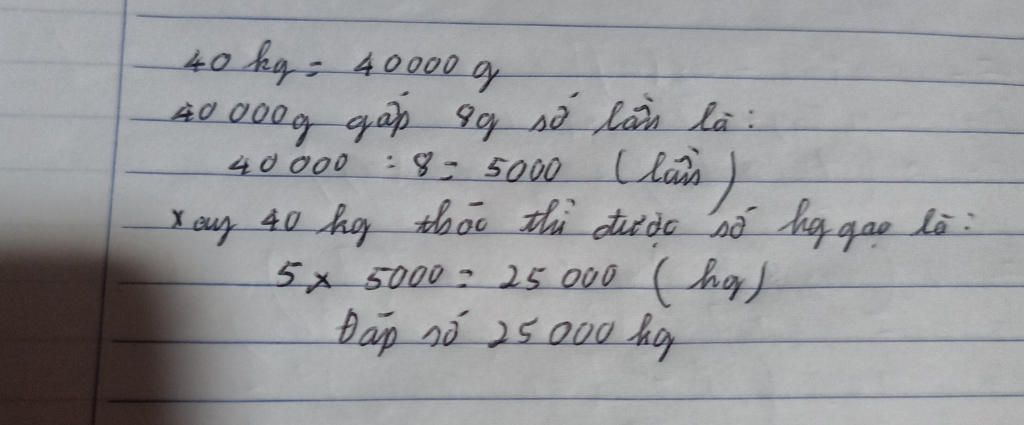 40 kg = 40000 g
40 000g gấp 8g số lần là:
40 000 : 8 = 5000 (lần)
xay 40 kg thóc thì được số kg gạo là:
5 x 5000 = 25 000 (kg)
Đáp số 25 000 kg